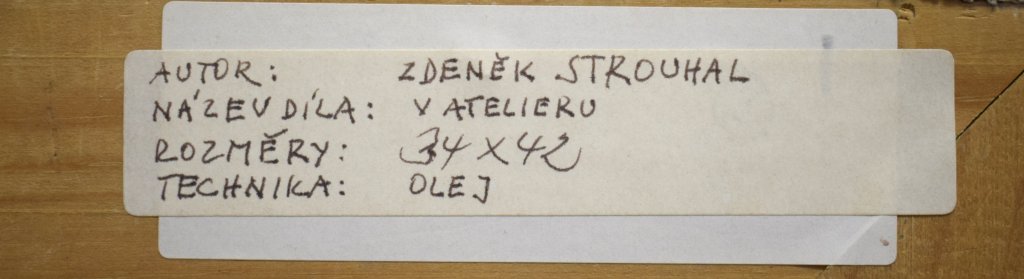 AUTOR: ZDENĚK STROUHAL
NÁZEV DÍLA: V ATELIERU
ROZMĚRY: 34 X 42
TECHNIKA: OLEJ